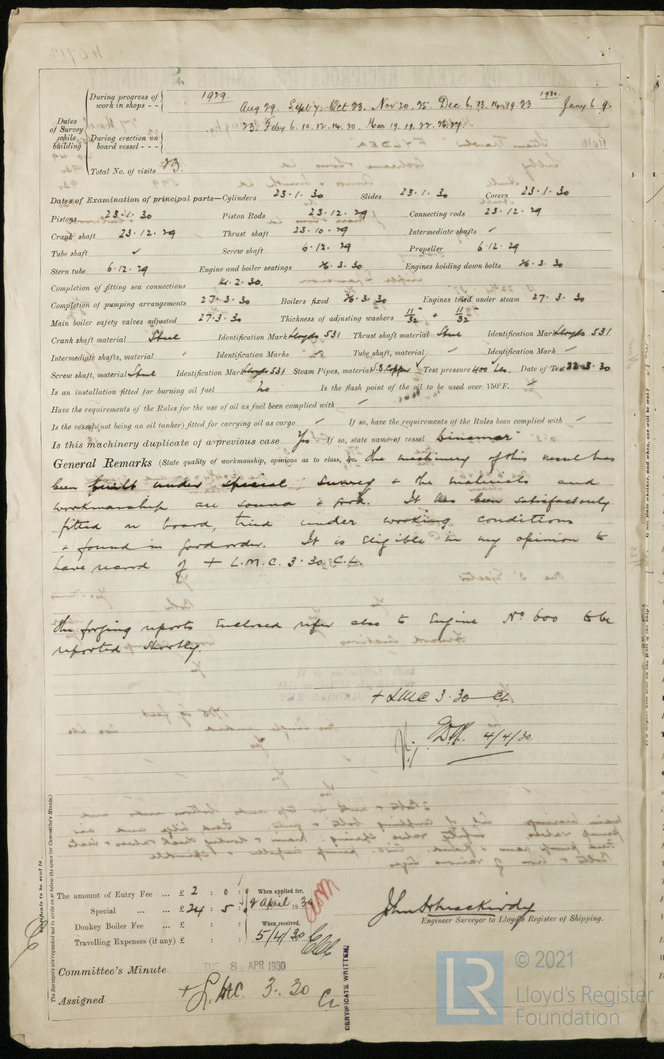 Dates of Survey while building
During progress of work in shops - - 1929 Aug 29. Sept 7. Oct 23. Nov 20. 25. Dec 6. 13. 14. 19 23 1930 Jany 6. 9.
During erection on board vessel - - - 23. Feby 6. 10. 12. 14. 20. Mar 19. 19. 22. 26. 27.
Total No. of visits 23.
Dates of Examination of principal parts—Cylinders 23.1.30 Slides 23.1.30 Covers 23.1.30
Pistons 23.1.30 Piston Rods 23.12.29 Connecting rods 23.12.29
Crank shaft 23.12.29 Thrust shaft 23.10.29 Intermediate shafts ✓
Tube shaft ✓ Screw shaft 6.12.29 Propeller 6.12.29
Stern tube 6.12.29 Engine and boiler seatings 26.3.30 Engines holding down bolts 26.3.30
Completion of fitting sea connections 14.2.30.
Completion of pumping arrangements 27.3.30 Boilers fixed 26.3.30 Engines tried under steam 27.3.30
Main boiler safety valves adjusted 27.3.30 Thickness of adjusting washers 11/32 + 11/32
Crank shaft material Steel Identification Mark Lloyds 531 Thrust shaft material Steel Identification Mark Lloyds 531
Intermediate shafts, material ✓ Identification Marks ✓ Tube shaft, material ✓ Identification Mark ✓
Screw shaft, material Steel Identification Mark Lloyds 531 Steam Pipes, material S.D. Copper Test pressure 400 lbs. Date of Test 22.3.30
Is an installation fitted for burning oil fuel No Is the flash point of the oil to be used over 150°F. ✓
Have the requirements of the Rules for the use of oil as fuel been complied with ✓
Is the vessel (not being an oil tanker) fitted for carrying oil as cargo ✓ If so, have the requirements of the Rules been complied with ✓
Is this machinery duplicate of a previous case Yes If so, state name of vessel
General Remarks (State quality of workmanship, opinions as to class, &c. The machinery of this vessel has
been built under special survey & the materials and
workmanship are sound & good. It has been satisfactorily
fitted on board, tried under working conditions
& found in good order. It is eligible in my opinion to
have record of + L.M.C. 3.30 C.L.
The forging reports enclosed refer also to Engine No 600 to be
reported shortly.
+ LMC 3.30 CL
4/4/30
The amount of Entry Fee ... £ 2 : 0 : When applied for,
Special ... ... £ 24 : 5 : April 1930
Donkey Boiler Fee ... £ : : When received,
Travelling Expenses (if any) £ : : 5/4/30
Engineer Surveyor to Lloyd's Register of Shipping.
Committee's Minute TUE 8 APR 1930
Assigned + LMC 3.30 CL
CERTIFICATE WRITTEN
Certificate to be sent to
The Surveyors are requested not to write on or below the space for Committee's Minute.
LR
© 2021
Lloyd's Register
Foundation